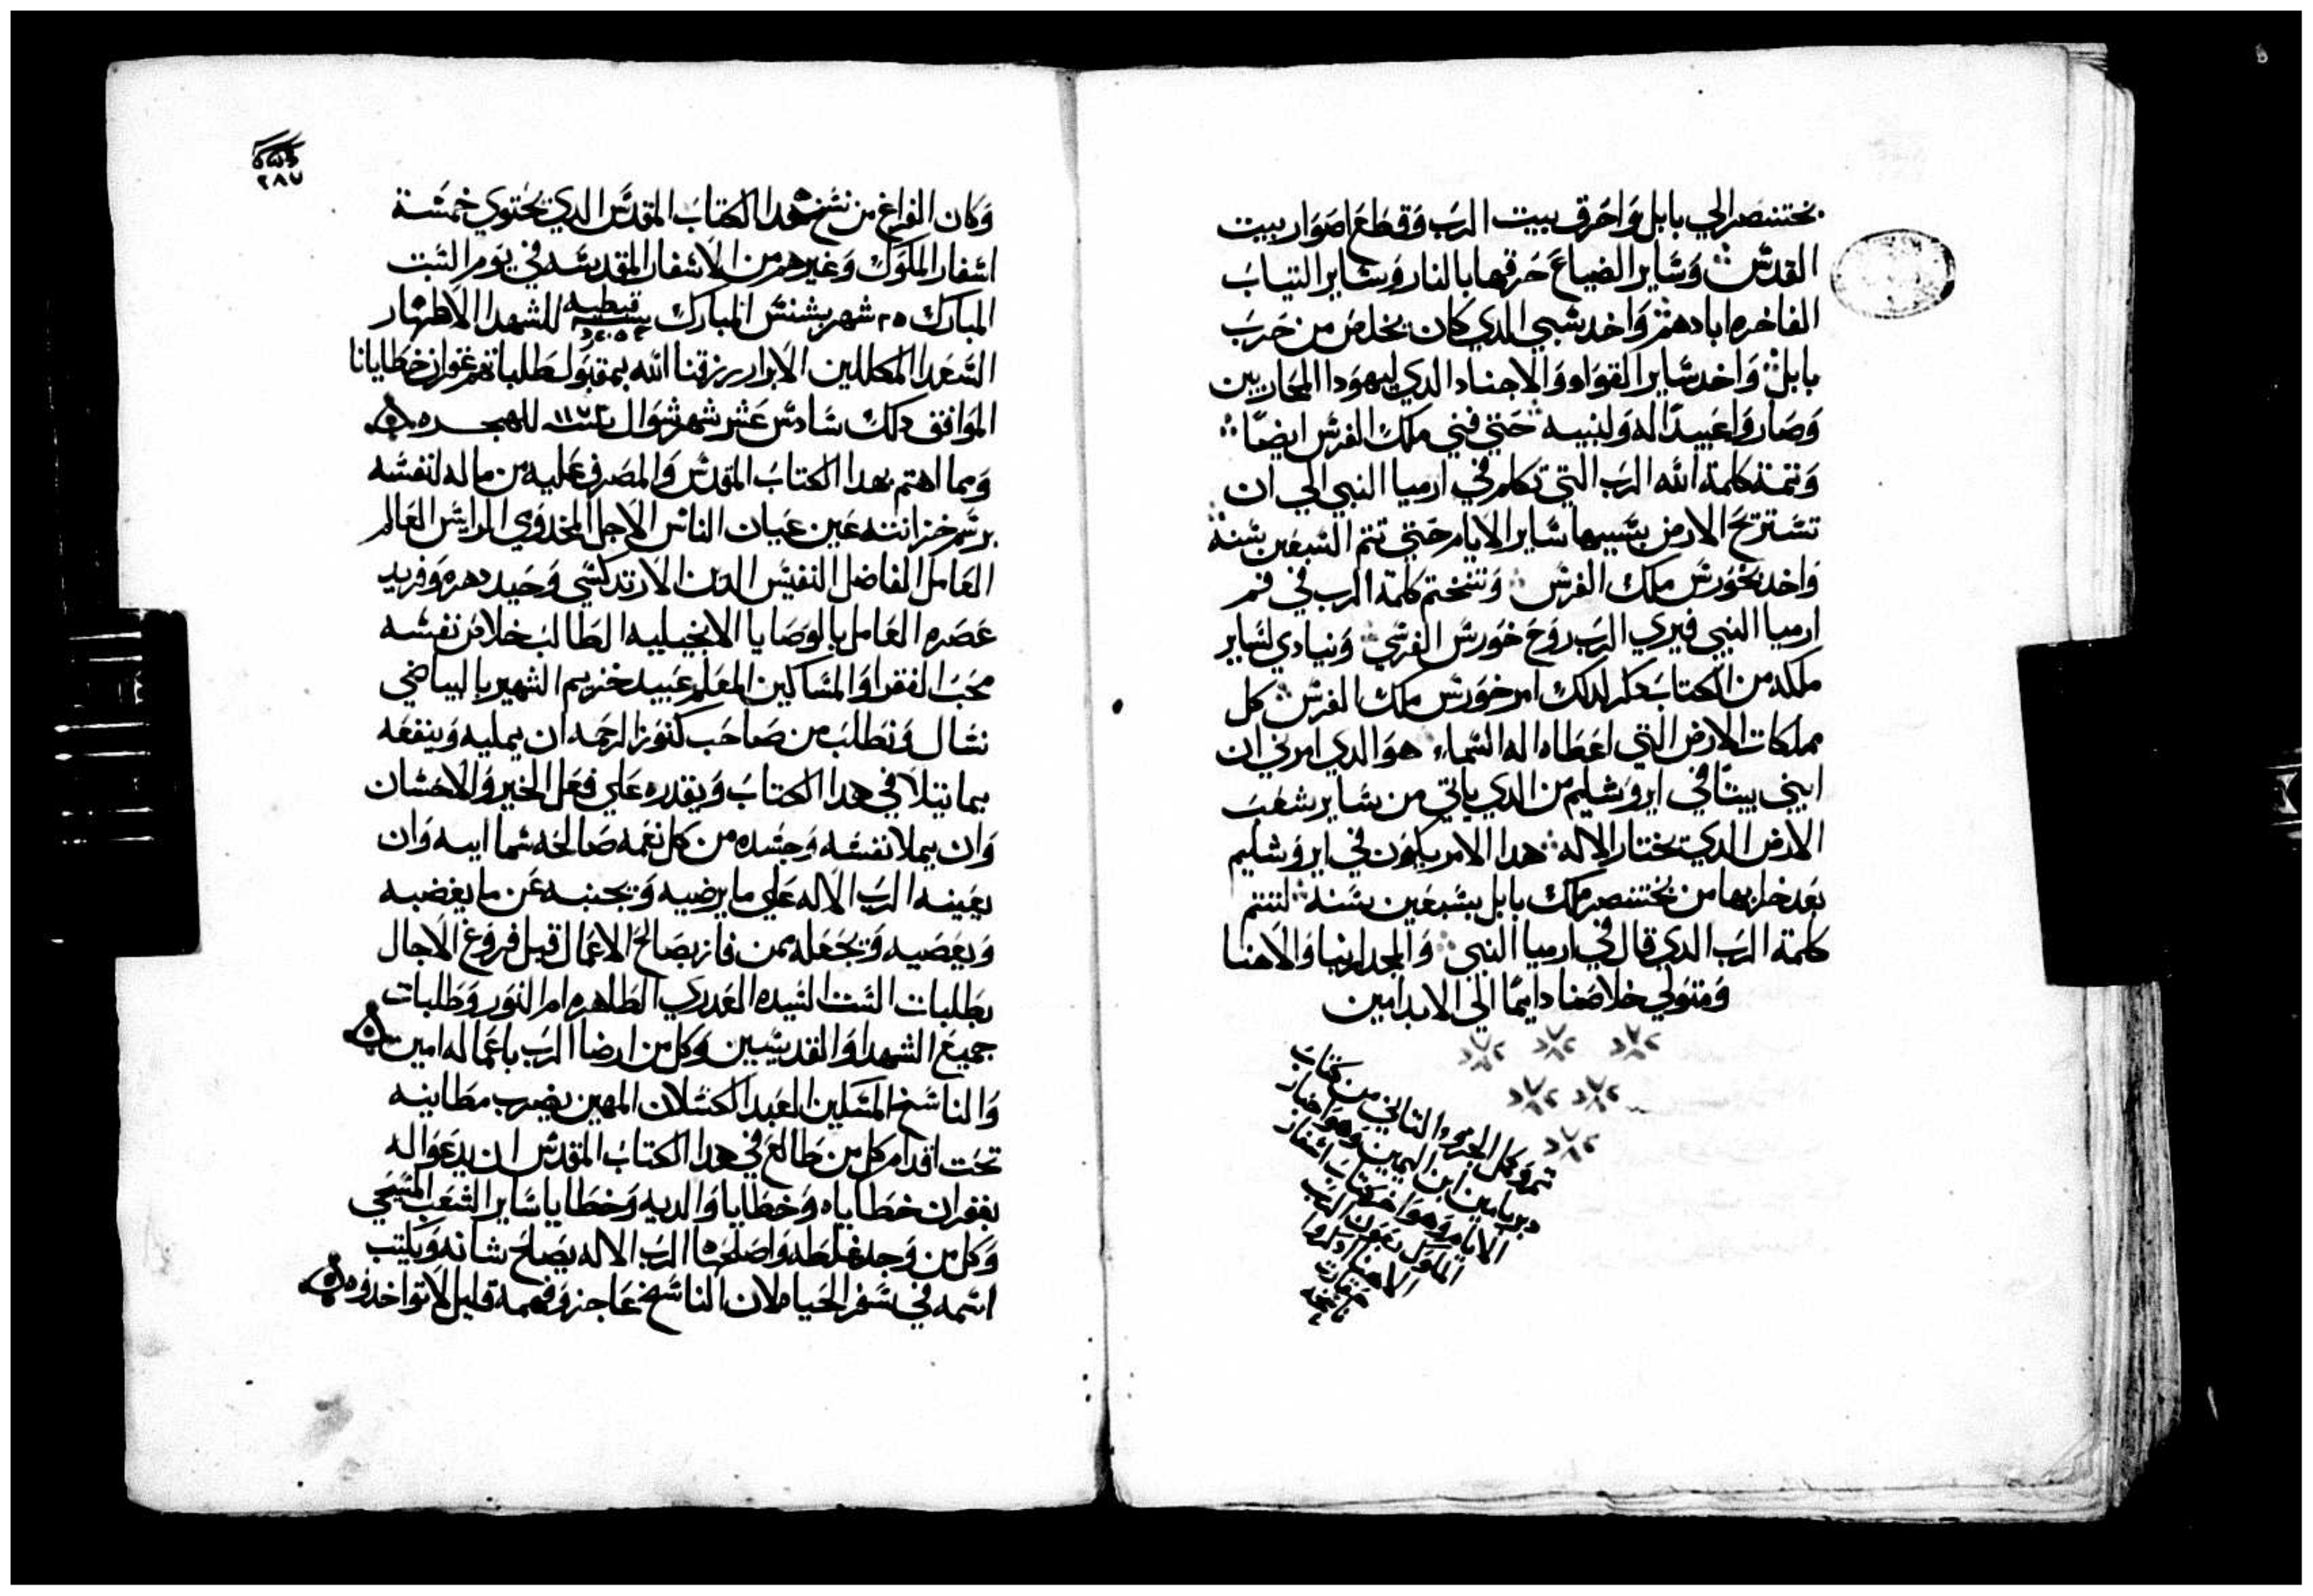 بختنصر الي بابل وَاحَرق بييت الربَ وَقطع اصَوَار بييت
القدسْ وَسَاير الضياع حَرقها بالنار وَسَاير التيابَ
الفاخره ابادهم وَاخد سَبي الدي كان يخلصَ من حَربَ
بابل وَاخد سَاير القوَاد وَالاجناد الدي ليهوَدا المحَاربين
وَصَاروَا عَبيدًا له وَلبنيه حَتي فني ملك الفرسْ ايضًا
وَتمة كلمة الله الربَ التي تكلم في ارميا النبي الي ان
تسَتريحَ الارض بسَبيها سَاير الايام حَتي تتم السَبعَين سَنة
وَاخد خوَرسْ ملك الفرسْ وَتنختم كلمة الرب في فم
ارميا النبي فيري الربَ روَحَ خوَرسْ الفرسي وَنيادي لسَاير
ملكه من الكتابَ دكر لدلك امر خوَرسْ ملك الفرسْ كل
مملكات الارض التي اعَطاه اله السَماء هوَ الدي امرني ان
ابني بيتًا في ايروَشليم من الدي ياتي من سَاير شعَبَ
الارض الدي يختار الاله هدا الامر يكوَن في ايروَشليم
بعَد خرابها من بختنصر ملك بابل بسَبعَين سَنة لتتم
كلمة الربَ الدي قال في ارميا النبي وَالمجد لربنا وَالاهنا
وَمتوَلي خلاصَنا دايمًا الي الابد امين
تم وَكمل الجزو الثاني من كتاب
دبريامين ابن اليمين وَهوَ اخبار
الايام وَهوَ اخر كتابَ اسَفار
الملوَك بعَوَن الربَ
الاهنا ادكروا
حقارت
ناسَخه
٢٨٧
وَكان الفراغ من نسَخ هدا الكتابَ المقدسَ الدي يحَتوي خمسَة
اسَفار الملوَك وَغيرهم من الاسَفار المقدسَه في يوَم السَبت
المبارك ٢٥ شهر بشنسْ المبارك سنة قبطيه للشهدا الاطهار
السَعَدا المكللين الابرار رزقنا الله بمقبوَل طلباتهم غفران خطايانا
الموَافق دلك سَادسْ عَشر شهر شوَال سنة ١١٧٢ للهجره
وَمما اهتم بهدا الكتابَ المقدسْ وَالمصَرف عَليه من ماله لنفسَه
برسَم خزانته عَين عَيان الناسْ الاجل المخدوَم الرايسْ العَالم
العَامل الفاضل النفيسْ الدين الارتدكسَي وَحَيد دهره وَفريد
عَصَره العَامل بالوَصَايا الانجيليه الطالبَ خلاصَ نفسَه
محَبَ الفقرا وَالمسَاكين المعَلم عَبيد خزيم الشهير بالبياضي
نسَال وَنطلبَ من صَاحَب كنوَز الرحمَه ان يمليه وَينفعَه
بما يتلا في هدا الكتابَ وَيقدره عَلي فعَل الخير وَالاحَسَان
وَان يملا نفسَه وَجسَده من كل نعَمه صَالحَه سَماايه وَان
يعَينه الربَ الاله عَلي ما يرضيه وَيجنبه عَن ما يغضبه
وَيعَصَيه وَيجعَله ممن فاز بصَالحَ الاعَمال قبل فروَغ الاجال
بطلبات السَت السَيده العَدري الطاهره ام النوَر وَطلبات
جميعَ الشهدا وَالقديسَين وَكل من ارضا الربَ باعَماله امين
وَالناسَخ المسَكين العَبد الكسَلان المهين يضرب مطانيه
تحَت اقدام كل من طالعَ في هدا الكتابَ المقدسْ ان يدعَوَا له
بغفران خطاياه وَخطايا وَالديه وَخطايا سَاير الشعَبَ المسَيحَي
وَكل من وَجد غلطه وَاصَلحَها الربَ الاله يصَلحَ شانه وَيكتب
اسَمه في سَفر الحَياه لان الناسَخ عَاجز وَفهمه قليل لا تواخدوه